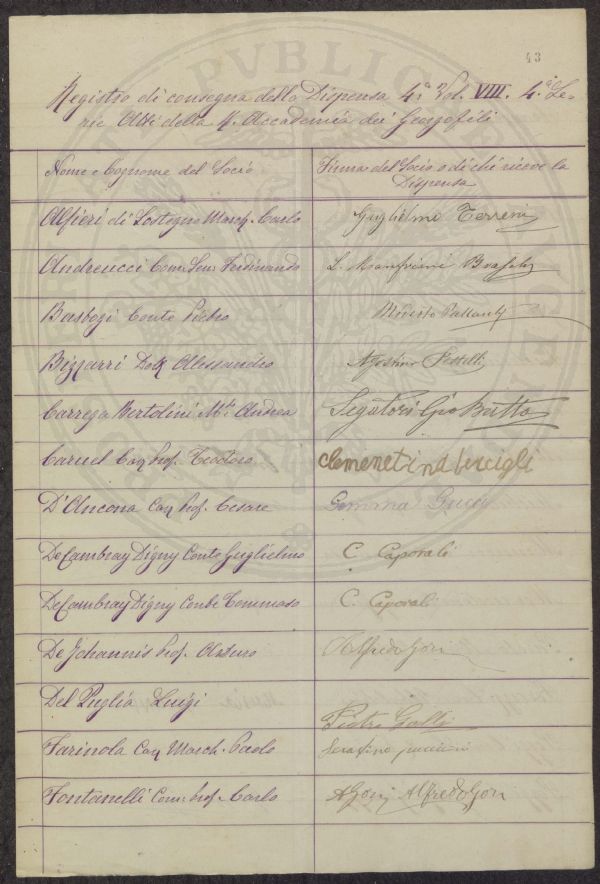 43
Registro di consegna della Dispensa 4.a Vol. VIII. 4.a Se-
rie Atti della R. Accademia dei Georgofili
Nome e Cognome del Socio
Firma del Socio o di chi riceve la
Dispensa
Alfieri di Sostegno March. Carlo Guglielmo Terreni
Andreucci Comm. Sen. Ferdinando L. Manfriani
Barbogi Conte Pietro Modesto
Bizzarri Dott. Alessandro Agostino
Carrega Bertolini M.se Andrea Segatori Gio Batta
Caruel Cav. Prof. Teodoro clemenetina bercigli
D'Ancona Cav. Prof. Cesare Gemma Gucci
De Cambray Digny Conte Guglielmo C. Caporali
De Cambray Digny Conte Tommaso C. Caporali
De Johannis Prof. Arturo Alfredo Gori
Del Puglia Luigi Pietro Galli
Farinola Cav. March. Paolo Serafino puccioni
Fontanelli Com. Prof. Carlo AGorj Alfredo Gori
PVBLIC